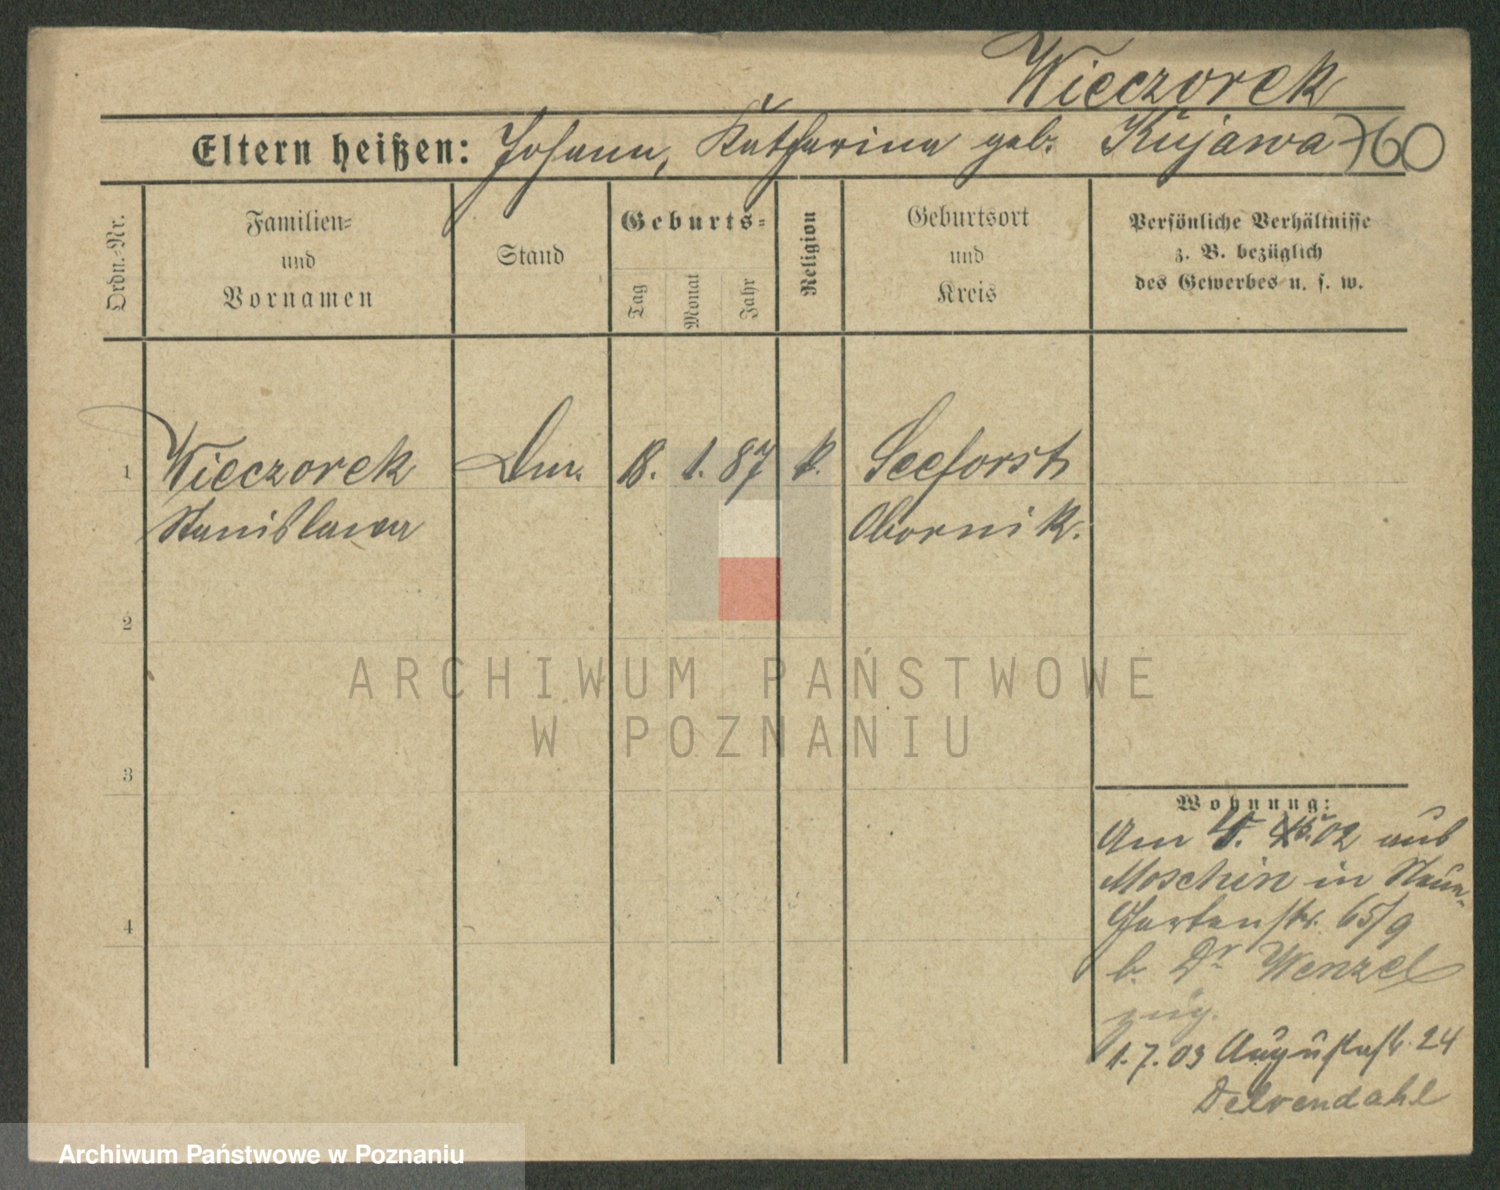 Wieczorek
Eltern heißen: Johann, Katharina geb. Kujawa 760
Ordn.-Nr.
Familien-
und
Vornamen
Stand
Geburts-
Tag
Monat
Jahr
Religion
Geburtsort
und
Kreis
Persönliche Verhältnisse
z. B. bezüglich
des Gewerbes u. s. w.
1 Wieczorek 18. 1. 87 k. Seeforst
Stanislawa Obornik.
2
3
4
ARCHIWUM PAŃSTWOWE
W POZNANIU
Wohnung:
Am 4. 02 aus
Moschin in
Gartenstr. 65/9
b. Dr Wenzel
zug.
1.7.03 Augustastr. 24
Delvendahl
Archiwum Państwowe w Poznaniu